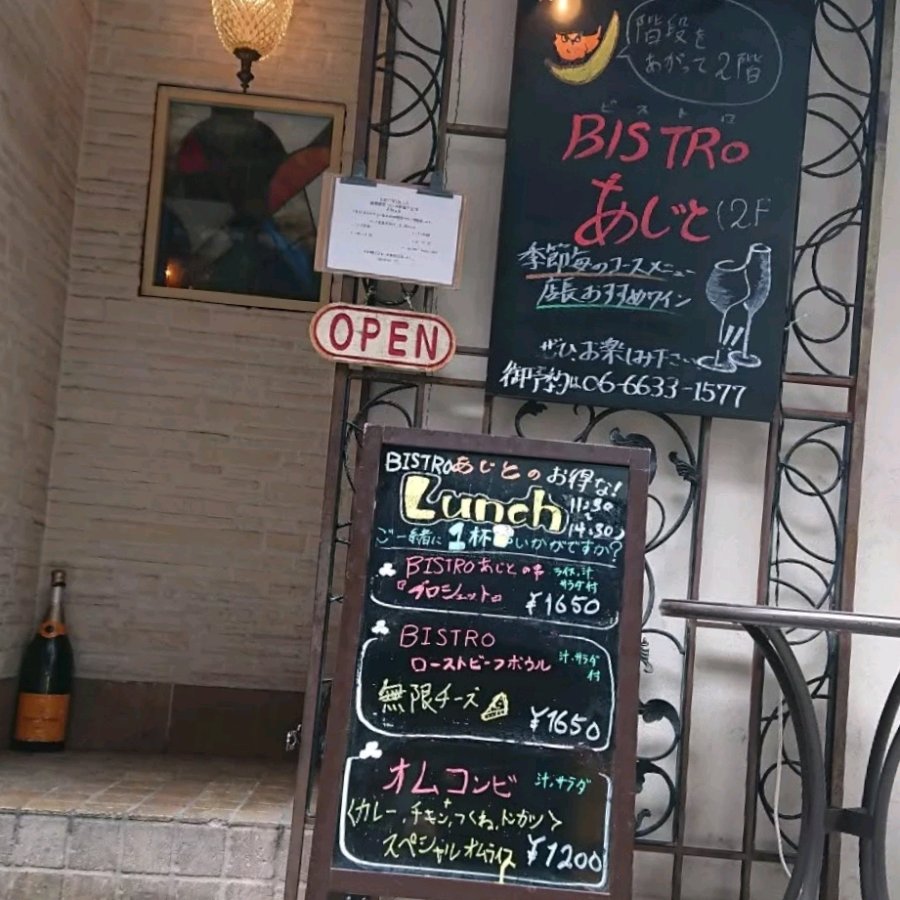 階段を
あがって2階
ビストロ
BISTRo
あじと(2F
季節毎のコースメニュー
店長おすすめワイン
ぜひお楽しみ下さい
御予約は06-6633-1577
OPEN
BISTROあじとのお得な!
Lunch 11:30
14:30
ご一緒に1杯いかがですか?
BISTROあじとの串 ライス,汁
サラダ付
『ブロシェット』 ¥1650
BISTRO
ローストビーフボウル 汁,サラダ
付
無限チーズ
¥1650
オムコンビ 汁,サラダ
〈カレー,チキン,つくね,トンカツ〉
+
スペシャルオムライス ¥1200